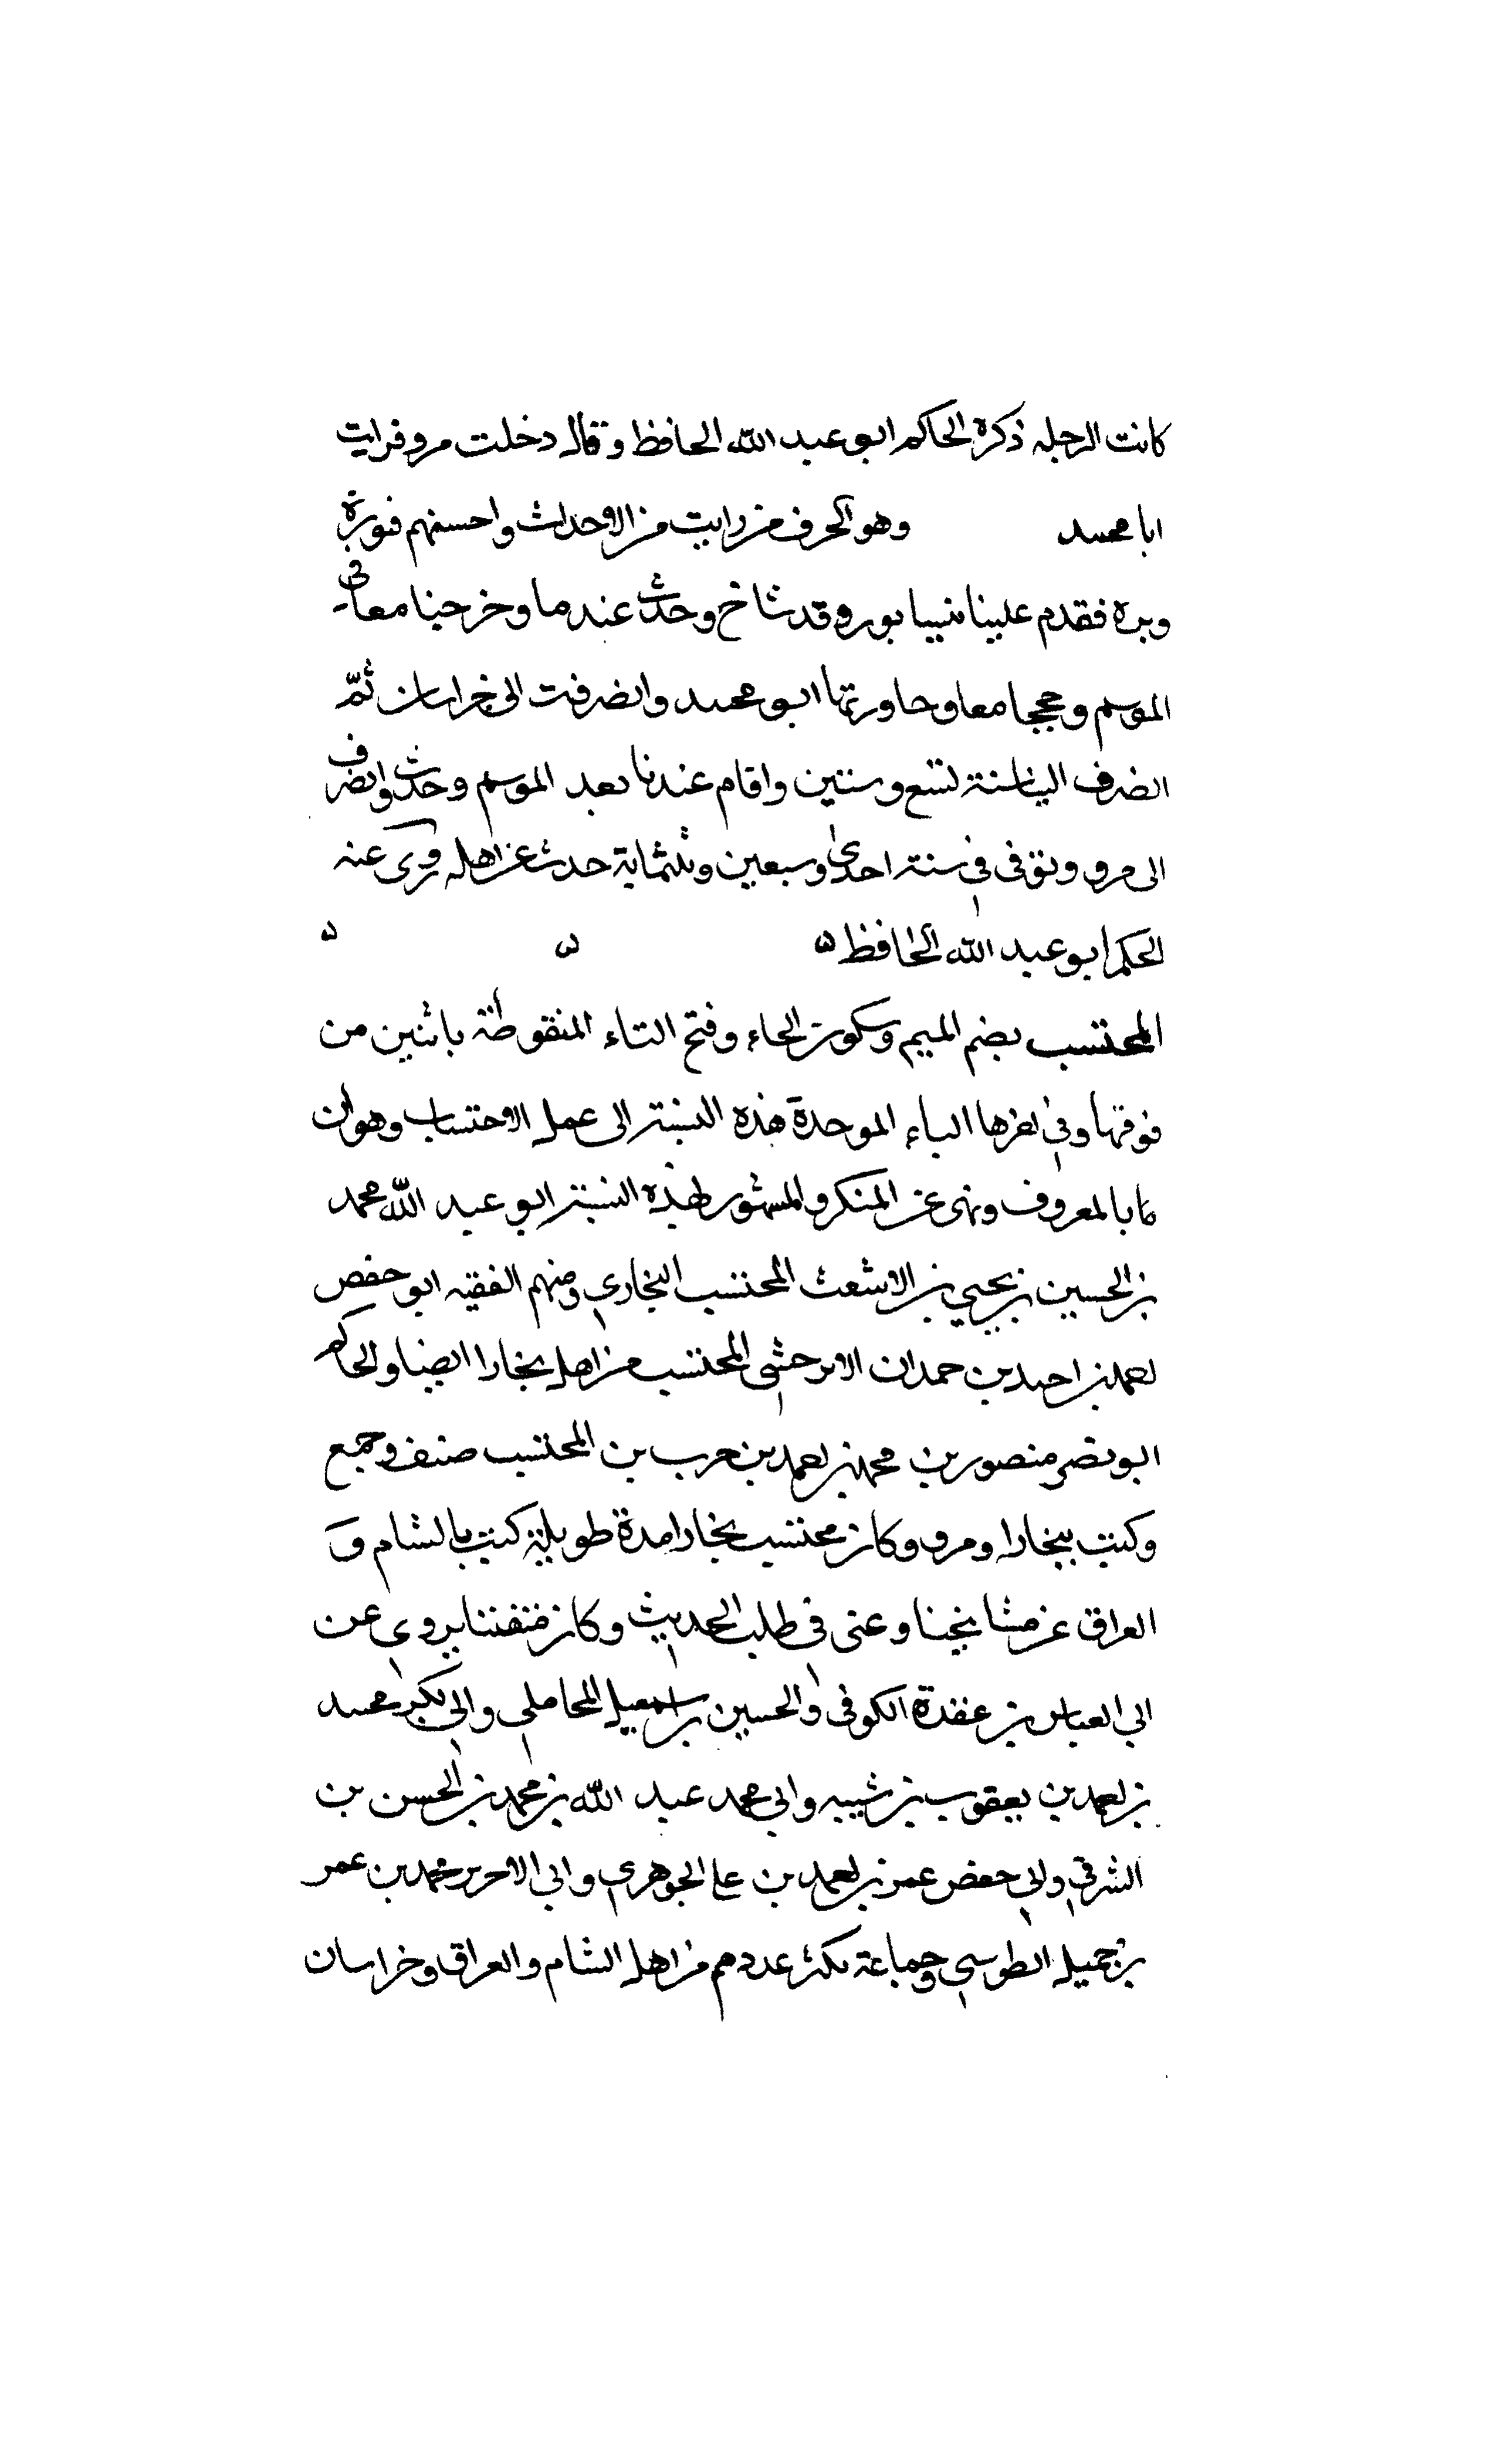 كانت الرحلة ذكره الحاكم ابو عبد الله الحافظ وقال دخلت مرو فرايت
ابا محمد وهو اظرف من رايت من الاحداث واحسنهم فورة
وبره فقدم علينا نيسابور وقد شاخ وحدث عندما وخرجنا معا في
الموسم وحججنا معا وجاور بها ابو محمد وانصرفت الى خراسان ثم
انصرف الينا سنة تسع وستين واقام عندنا بعد الموسم وحدث وانصرف
الى مرو وتوفى في سنة احدى وسبعين وثلثماية حدث عن اهله روى عنه
الحكم ابو عبد الله الحافظ ه ه ه
المحتسب بضم الميم وسكون الحاء وفتح التاء المنقوطة باثنين من
فوقها وفي اخرها الباء الموحدة هذه النسبة الى عمل الاحتساب وهو ان
بالمعروف ونهى عن المنكر والمشهور بهذه النسبة ابو عبد الله محمد
بن الحسين بن يحيي بن الاشعث المحتسب البخاري ومنهم الفقيه ابو حفص
احمد بن احيد بن حمدان المحتسب من اهل بخارا ايضا والحاكم
ابو نصر منصور بن محمد بن احمد بن حرب بن المحتسب صنف وجمع
وكتب ببخارا ومرو وكان محتسب بخارا مدة طويلة كتب بالشام و
العراق عن مشايخنا وعنى في طلب الحديث وكان متفننا يروي عن
ابي العباس بن عقدة الكوفي والحسين بن اسمعيل المحاملي وابي بكر محمد
بن احمد بن يعقوب بن شيبه وابي محمد عبد الله بن محمد بن الحسن بن
الشرقي وابي حفص عمر بن احمد بن علي الجوهري وابي الاحرز محمد بن عمر
بن جميل الطوسي وجماعة يكثر عددهم من اهل الشام والعراق وخراسان